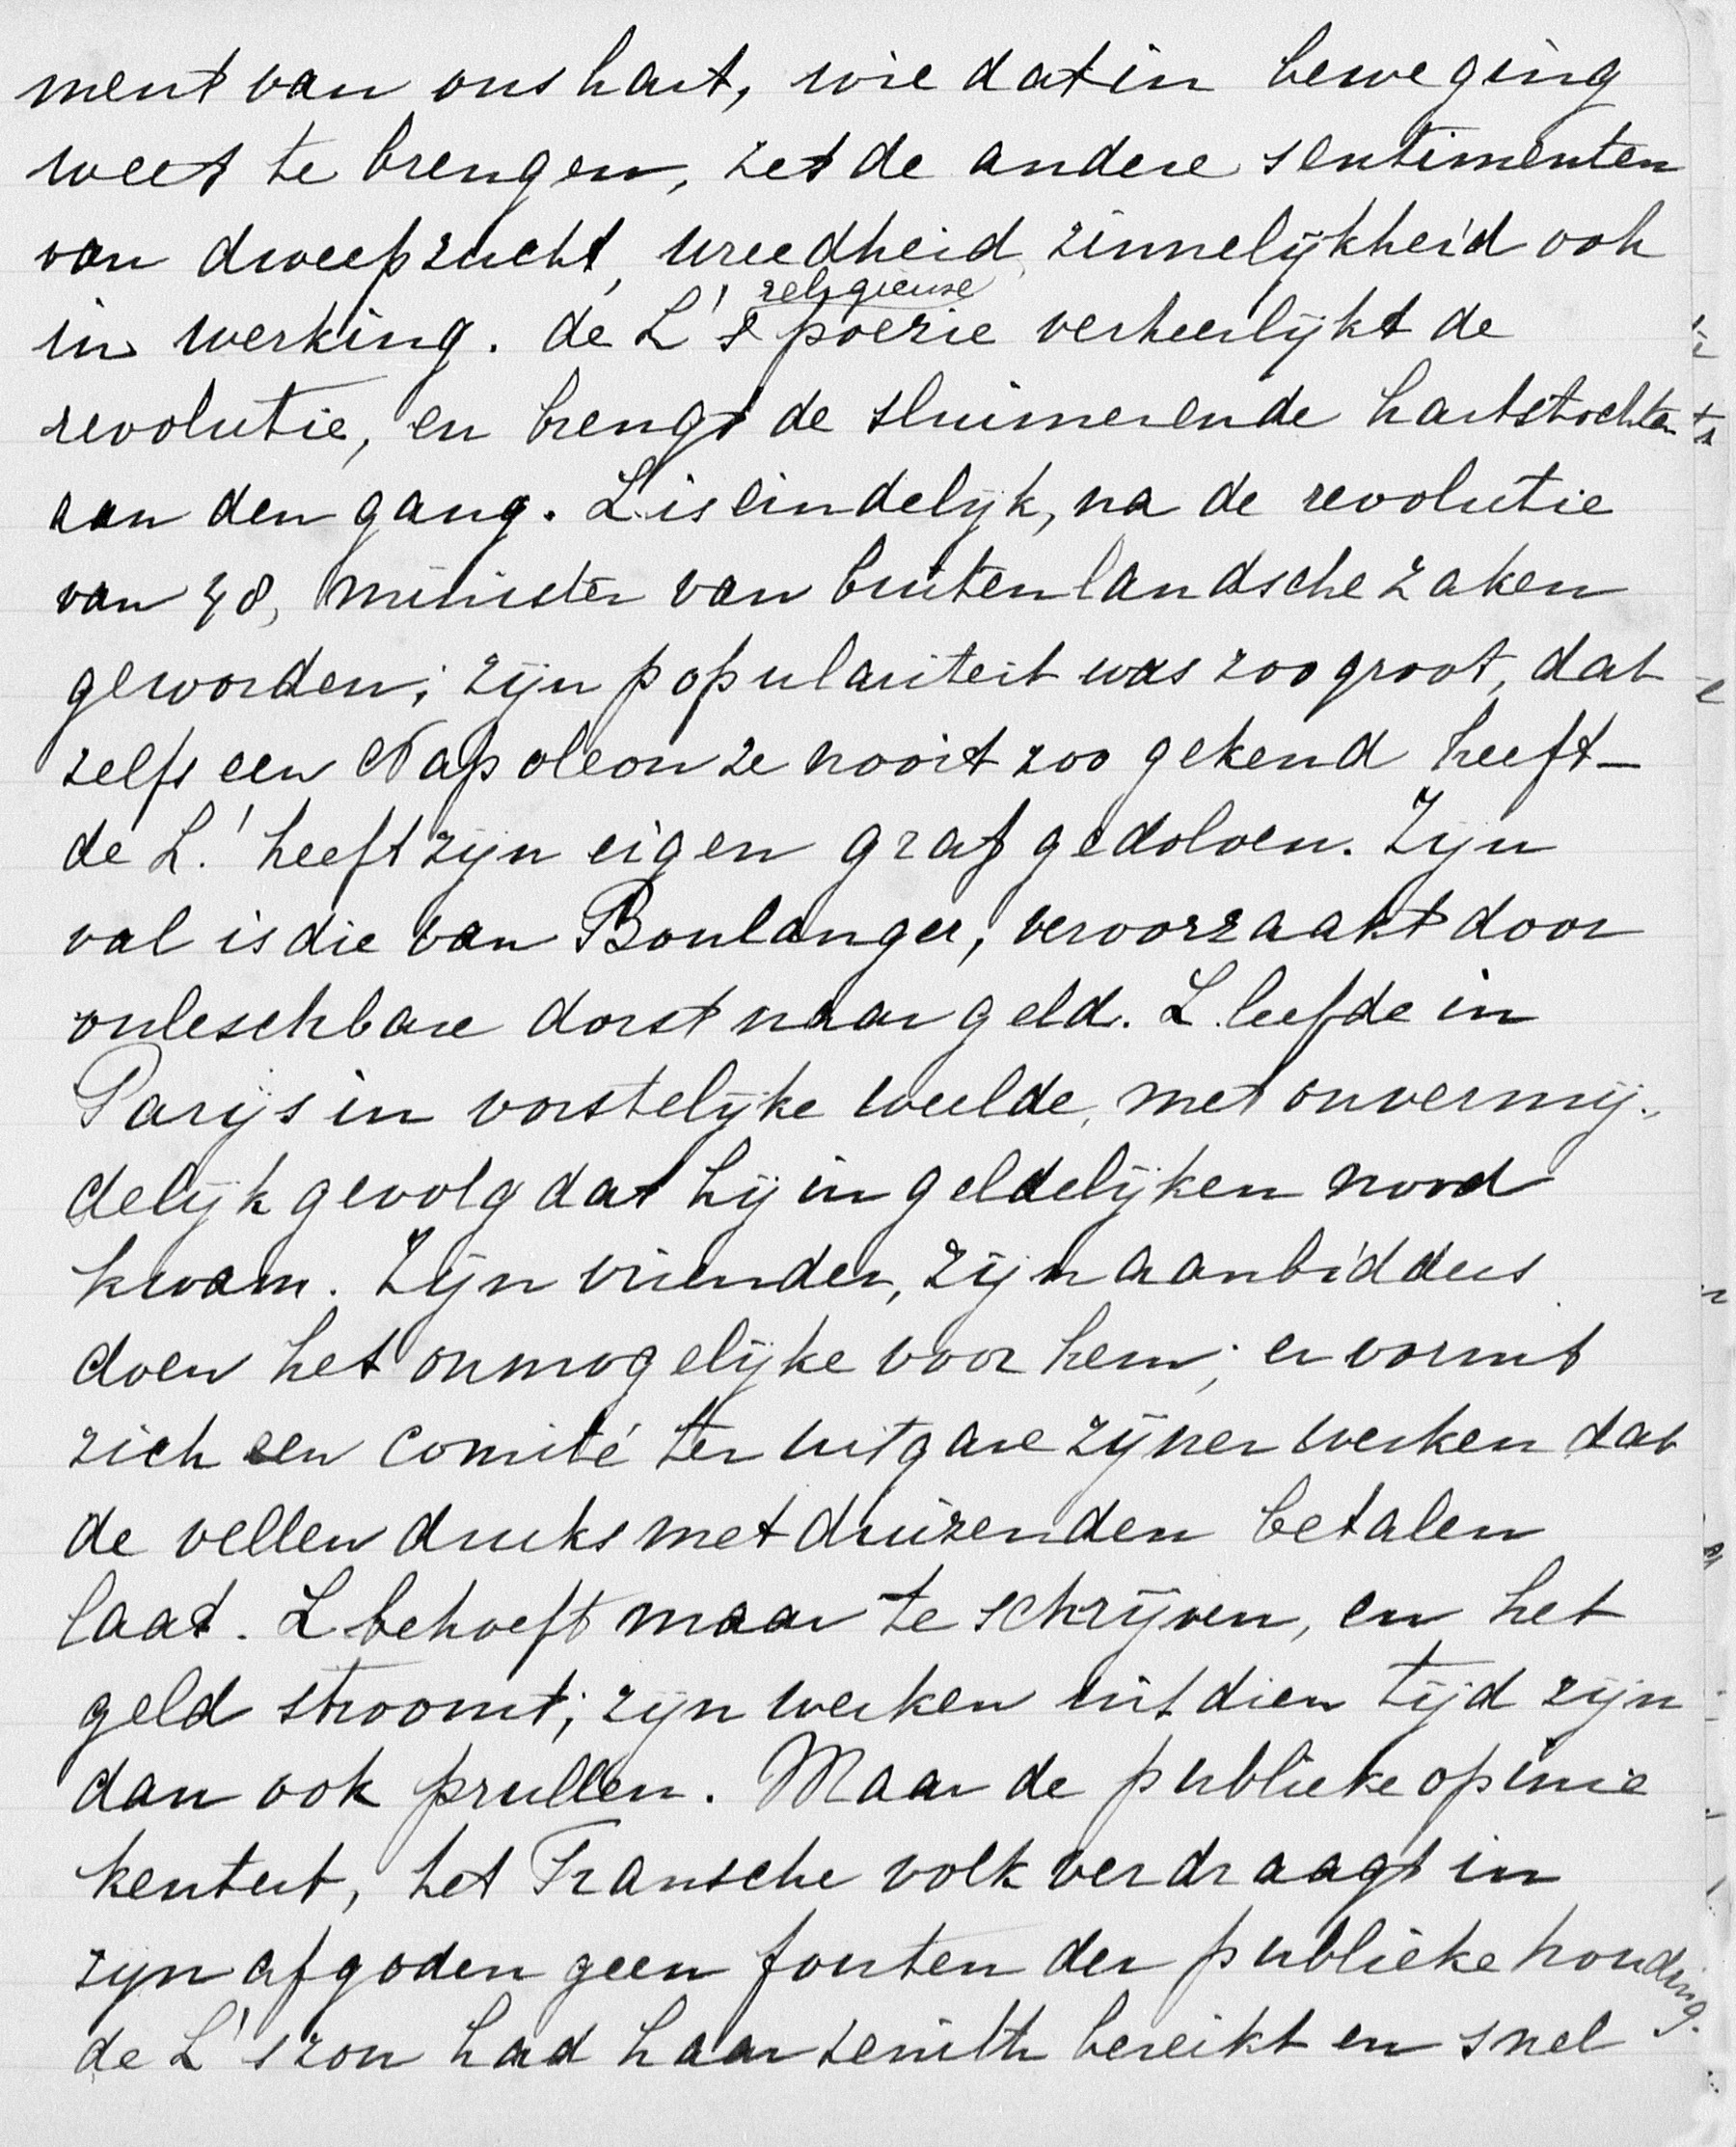 ment van ons hart, wie dat in beweging
weet te brengen, zet de andere sentimenten
van dweepzucht, wreedheid, zinnelijkheid ook
in werking. de L's religieuse poëzie verheerlijkt de
revolutie, en brengt de sluimerende hartstochten
aan den gang. L. is eindelijk, na de revolutie
van 48, minister van buitenlandsche zaken
geworden; zijn populariteit was zoo groot, dat
zelfs een Napoleon ze nooit zoo gekend heeft –
de L. heeft zijn eigen graf gedolven. Zijn
val is die van Boulanger, veroorzaakt door
onleschbare dorst naar geld. L. leefde in
Parijs in vorstelijke weelde, met onvermij-
delijk gevolg dat hij in geldelijken nood
kwam. Zijn vrienden, zijn aanbidders
doen het onmogelijke voor hem; er vormt
zich een comité ter uitgave zijner werken dat
de vellen druks met duizenden betalen
laat. L. behoeft maar te schrijven, en het
geld stroomt; zijn werken uit dien tijd zijn
dan ook prullen. Maar de publieke opinie
kentert, het Fransche volk verdraagt in
zijn afgoden geen fouten der publieke houding.
de L's zon had haar zenith bereikt en snel